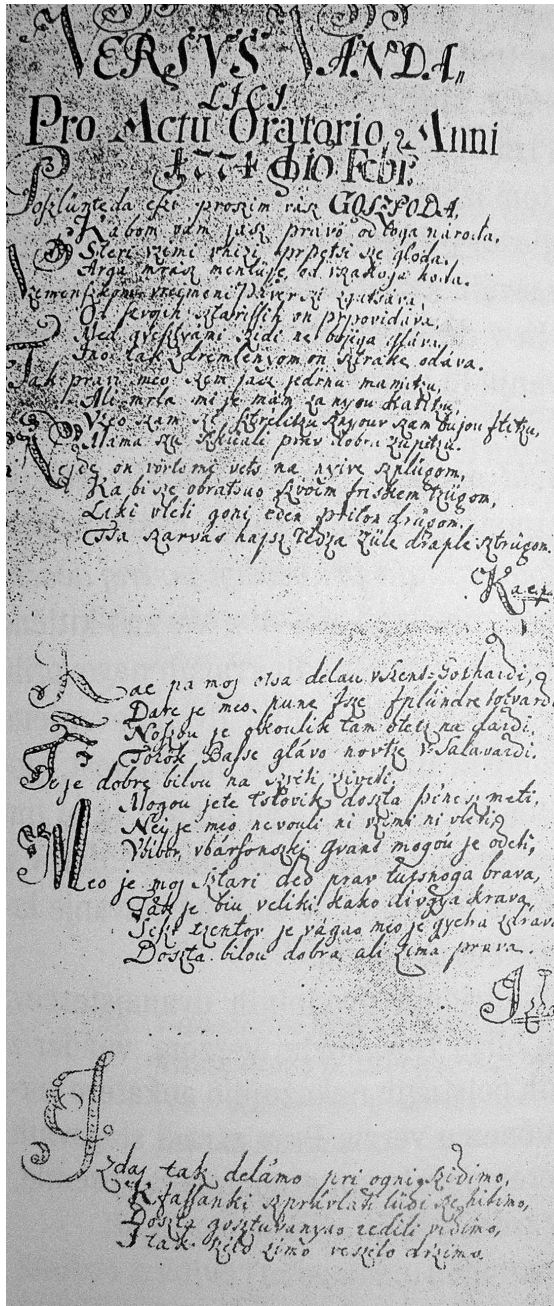 VERSVS VANDA„
LICI
Pro Actu Oratorio Anni
1774 die 10 Febr.
Poszlunte da eszi proszim vász GOSZPODA,
Kabom vam jasz pravo od toga naroda,
Steri vzimi vhizi, szé gloda,
Arga mraz mentuje, od vzakoja hoda.
Zemenszkomi vremeni páver
Od szvojih sztarissih on pripovidáva,
Med szidi ne bojga gláva,
Ino tak zdremlenyom on sztrake odáva.
Tak pravi meo szem jasz jedrnu mamitzu,
Ali mrla mi je mám zanyou Katitzu,
Vzeo szam szi sztrelitzu
Mama szu szkuhali práv dobra zupitzu.
Nejde on vörlomi vets na nyive szplügom,
Ka bi sze obratsuo szvoim friskem tzügom,
Liki vleti goni eden pri drügom.
Tsa szarvas hajsz Tedza züle draple sztrügom.
Kaepa
Kae pa moj otsa delau vszent-Gothardi,
Dare je meo pune
je okoulik tam otetz na gardi.
Török Basse glávo novtje v-Salavardi.
Te je dobre bilou na szveti ziveti,
Mogou je te tslovik doszta pinesz meti,
Nej je meo nevouli ni vzimi ni vleti,
Vbitor, vbarsonszki gvant mogou je odeti,
Meo je moj sztari ded prav tusznoga brava,
Tak je biu veliki kako divgya krava,
Seszt tzentov je vágao meo je gycha zdrava
Doszta bilou dobra ali zima prava.
Izda
Izdaj tak delámo pri ogni szidimo,
K fassanki szprávlati lüdi sze hitimo,
Doszta gosztüvanyao redili vidimo,
I tak zimo veszelo drzimo.